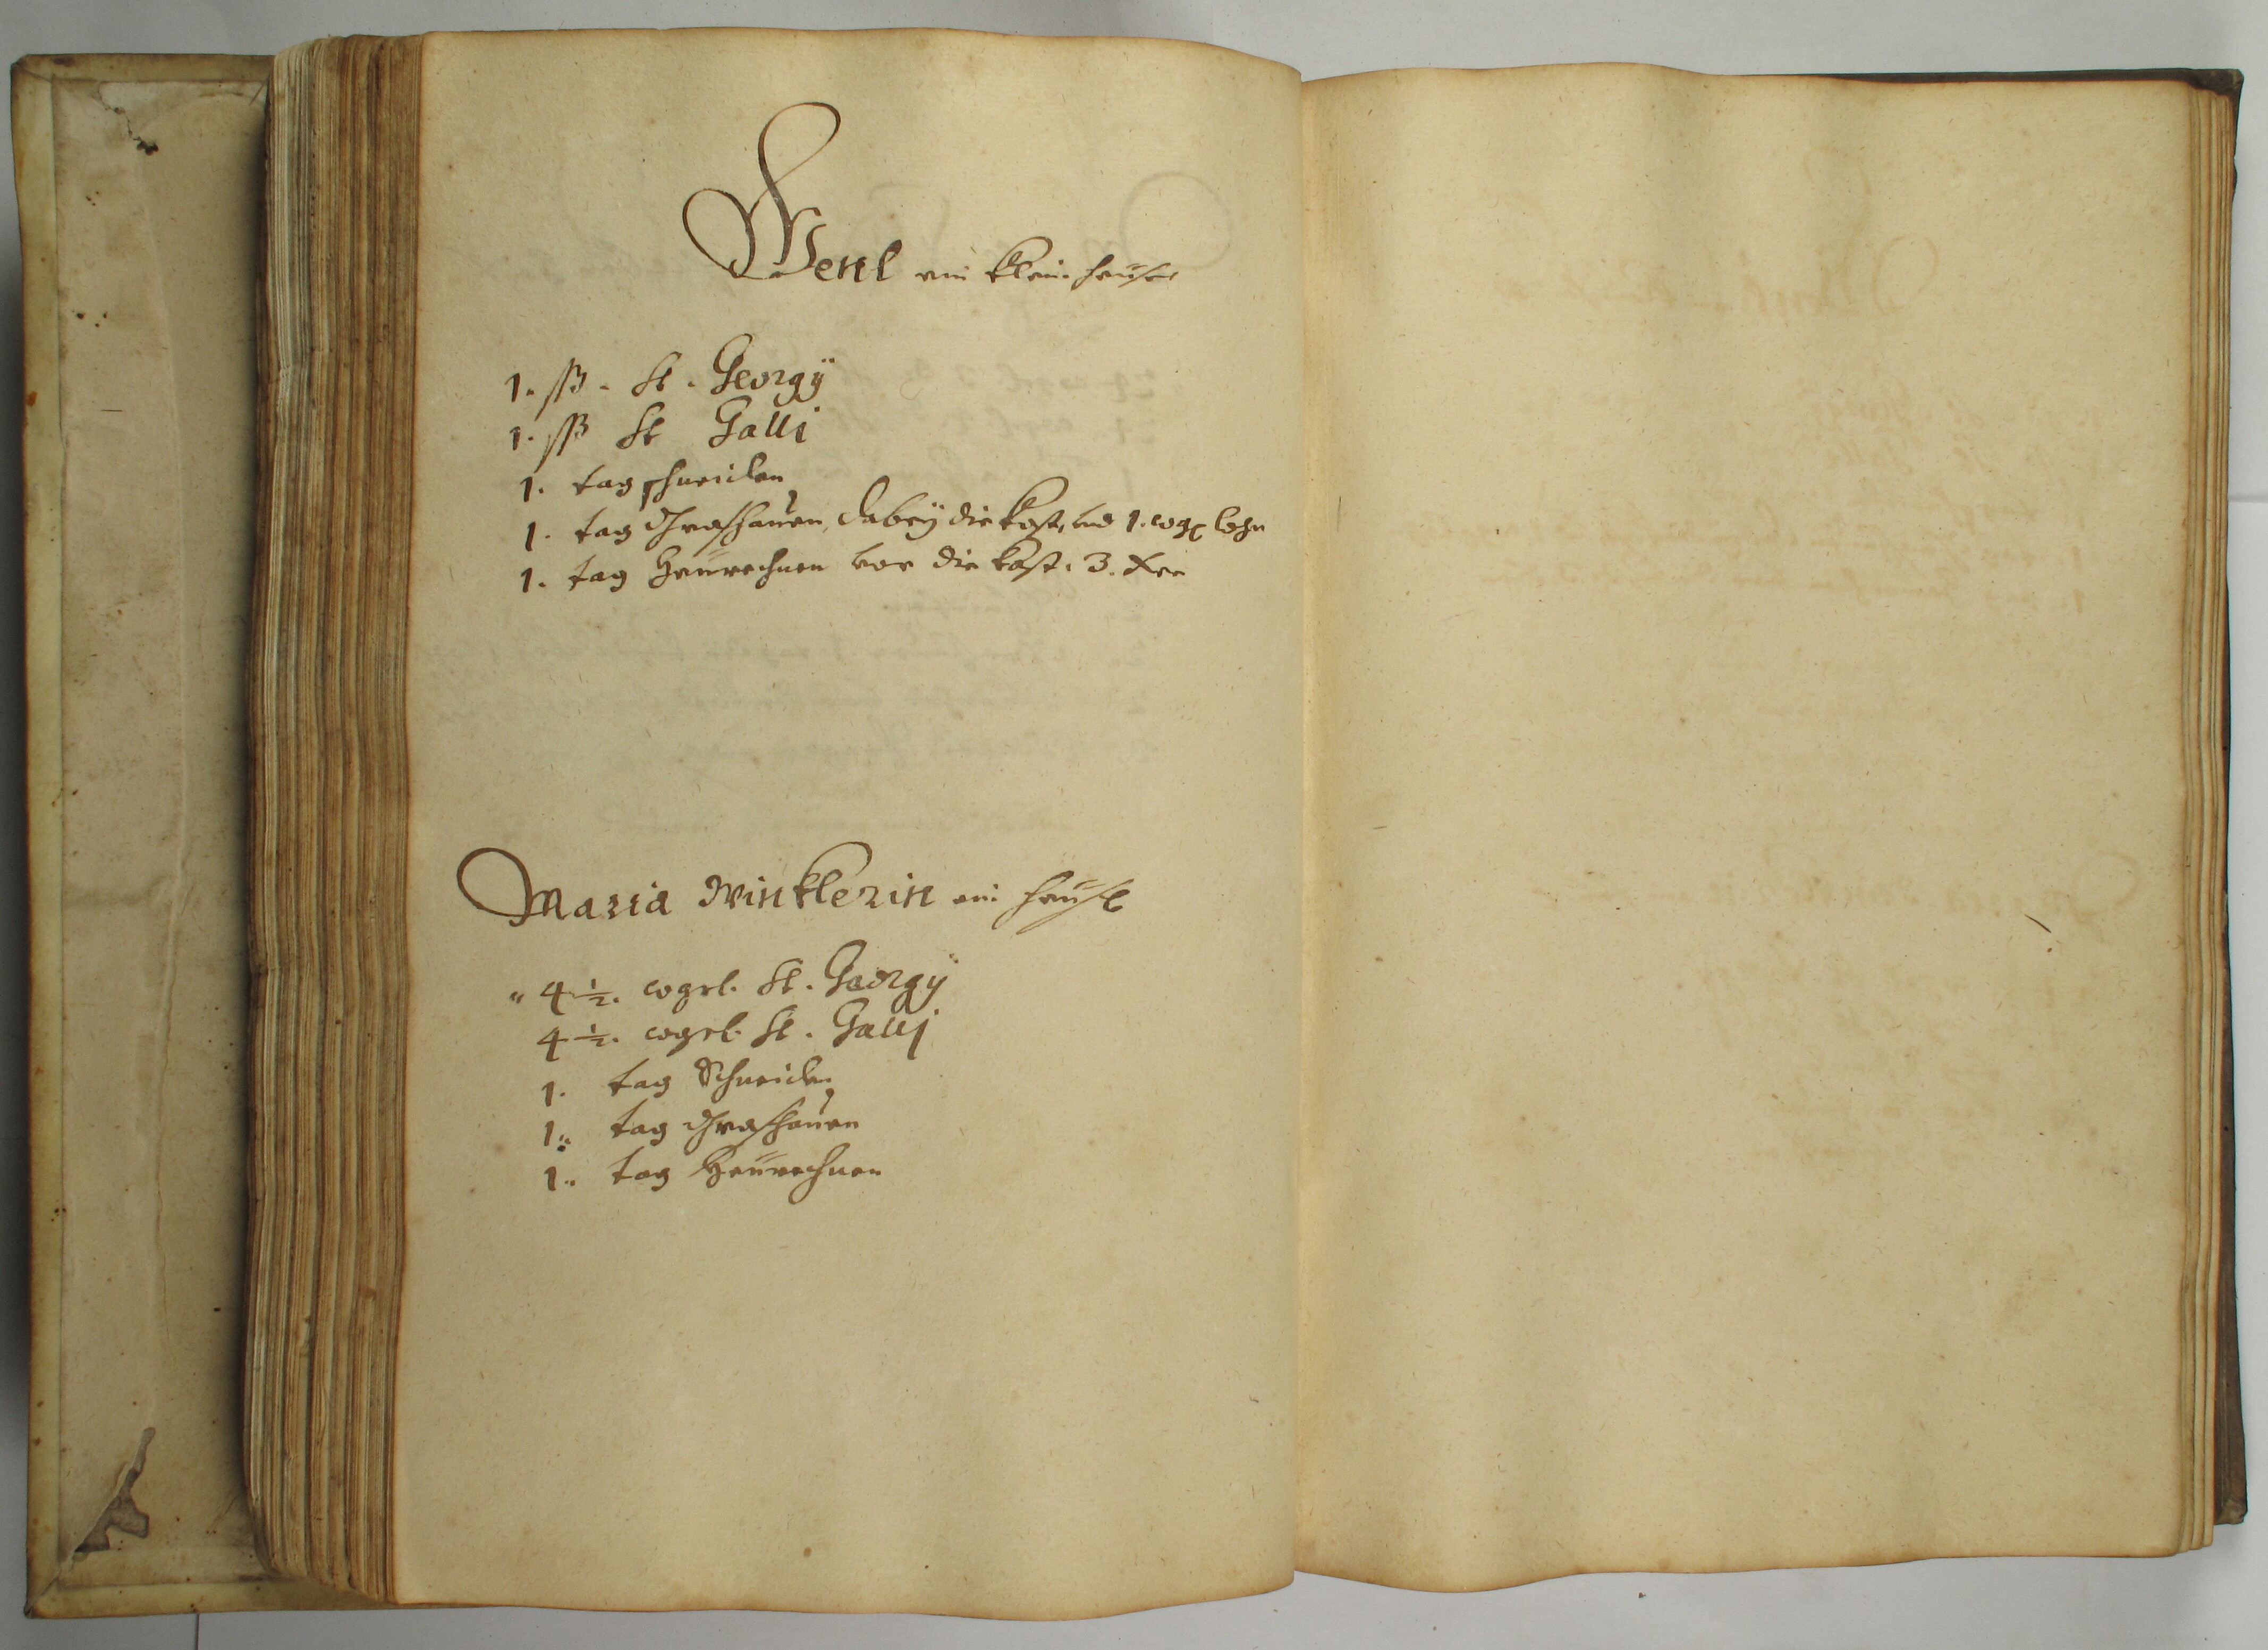 Wenl ein klein heusl
1. ß. St. Georgÿ
1. ß St Galli
1. tag schneiden
1. tag Grashauen, dabeÿ die kost, und 1. wgr lohn
1. tag Heurechnen vor die kost. 3. Xer
Maria Winklerin ein heusl
4 1/2. wgrl. St. Georgÿ
4 1/2. wgrl. St. Gallj
1. tag Schneiden
1. tag Grashauen
1. tag Heurechnen